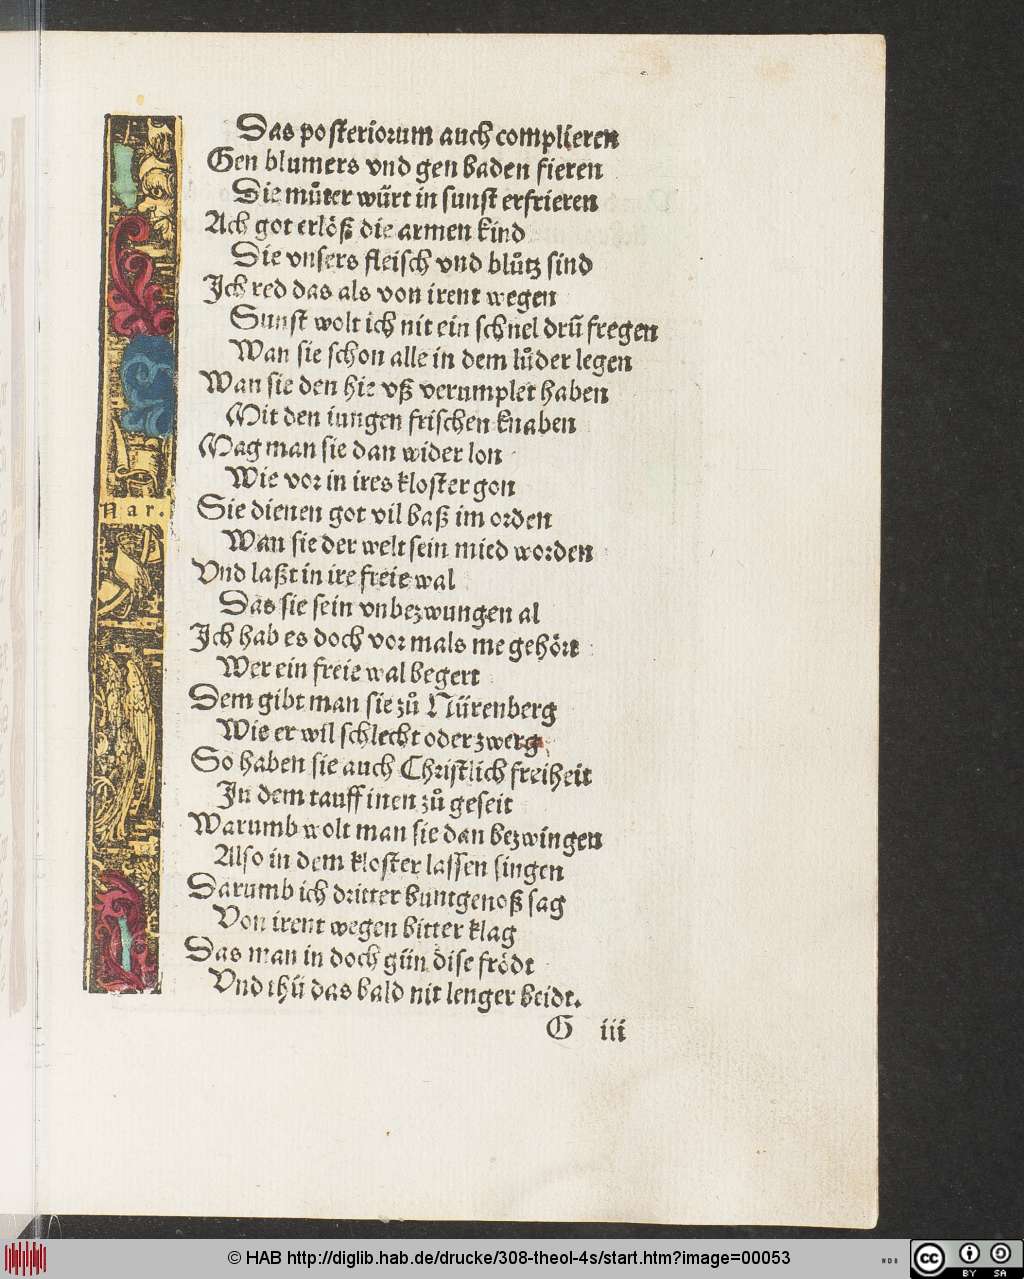 Das posteriorum auch complieren
Gen blumers vnd gen baden fieren
Die muͦter würt in sunst erfrieren
Ach got erlöß die armen kind
Die vnsers fleisch vnd bluͦtz sind
Ich red das als von irent wegen
Sunst wolt ich nit ein schnel drū fregen
Wan sie schon alle in dem luͦder legen
Wan sie den hie vß verumplet haben
Mit den iungen frischen knaben
Mag man sie dan wider lon
Wie vor in ires kloster gon
Nar.
Sie dienen got vil baß im orden
Wan sie der welt sein mied worden
Vnd laßt in ire freie wal
Das sie sein vnbezwungen al
Ich hab es doch vor mals me gehört
Wer ein freie wal begert
Dem gibt man sie zuͦ Nürenberg
Wie er wil schlecht oder zwerg
So haben sie auch Christlich freiheit
In dem tauff inen zuͦ geseit
Warumb wolt man sie dan bezwingen
Also in dem kloster lassen singen
Darumb ich dritter buntgenoß sag
Von irent wegen bitter klag
Das man in doch gün dise frödt
Vnd thü das bald nit lenger beidt.
G iii
© HAB http://diglib.hab.de/drucke/308-theol-4s/start.htm?image=00053
WDB
cc
BY SA